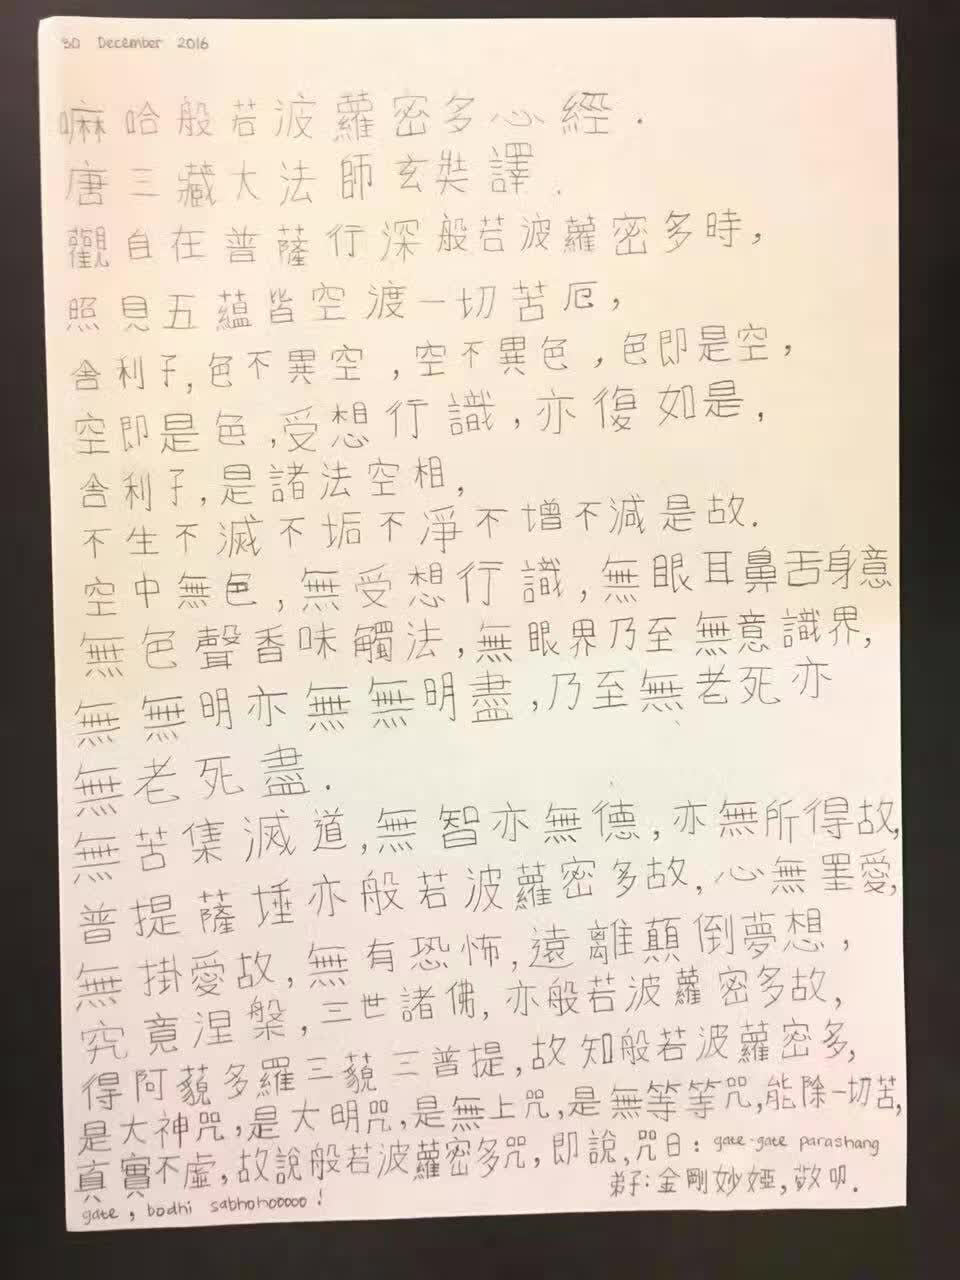 30 December 2016
嘛哈般若波蘿密多心經．
唐三藏大法師玄奘譯．
觀自在普薩行深般若波蘿密多時，
照見五蘊皆空渡一切苦厄，
舍利子，色不異空，空不異色，色即是空，
空即是色，受想行識，亦復如是，
舍利子，是諸法空相，
不生不滅不垢不淨不增不減是故．
空中無色，無受想行識，無眼耳鼻舌身意
無色聲香味觸法，無眼界乃至無意識界，
無無明亦無無明盡，乃至無老死亦
無老死盡．
無苦集滅道，無智亦無德，亦無所得故，
普提薩埵亦般若波蘿密多故，心無罣愛，
無掛愛故，無有恐怖，遠離顛倒夢想，
究竟涅槃，三世諸佛，亦般若波蘿密多故，
得阿藐多羅三藐三普提，故知般若波蘿密多，
是大神咒，是大明咒，是無上咒，是無等等咒，能除一切苦，
真實不虛，故說般若波蘿密多咒，即說，咒曰：gate-gate parashang
gate, bodhi sabhohooooo!
弟子：金剛妙婭，敬叩．